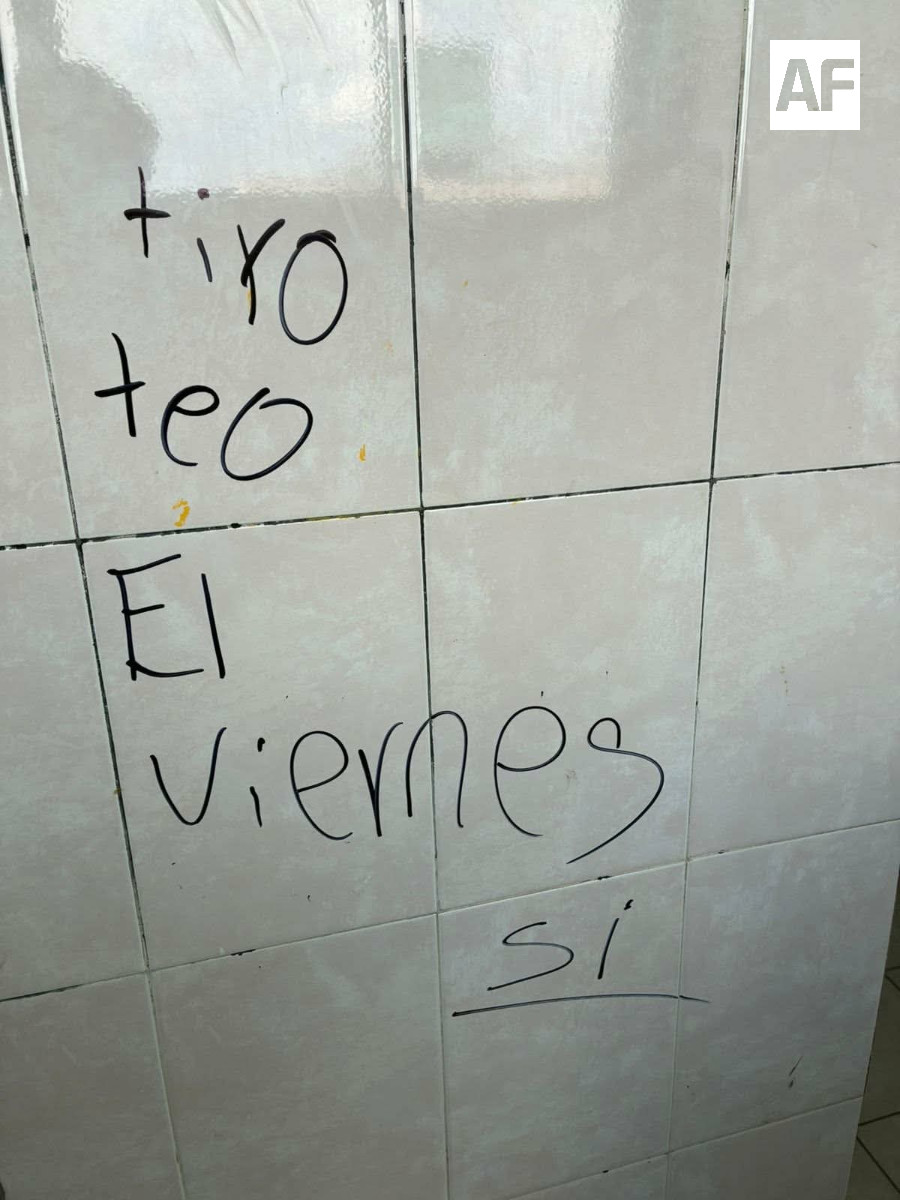 AF
tiro
teo
El
viernes
si